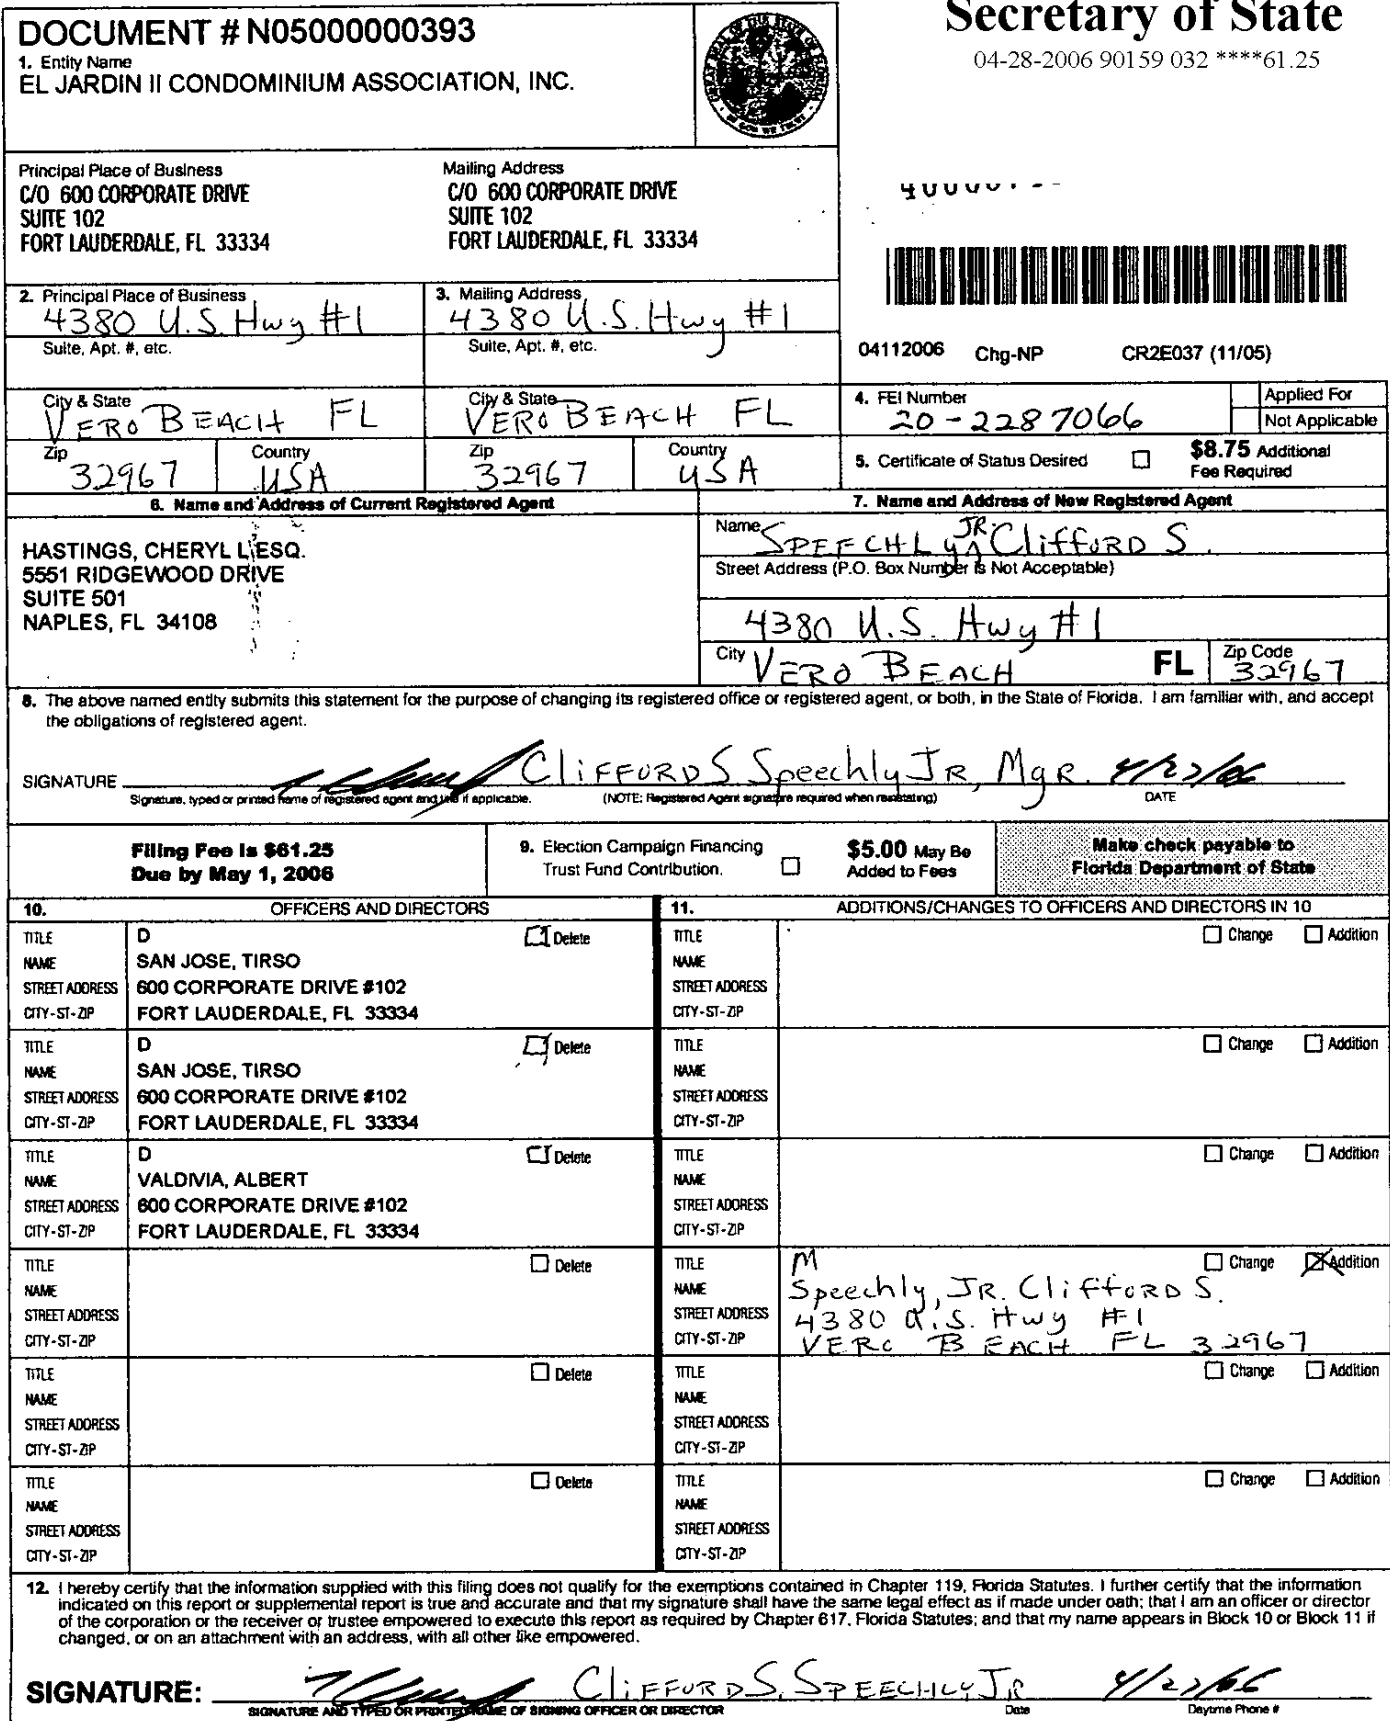 Secretary of State
04-28-2006 90159 032 ****61.25
DOCUMENT # N05000000393
1. Entity Name
EL JARDIN II CONDOMINIUM ASSOCIATION, INC.
Principal Place of Business
C/O 600 CORPORATE DRIVE
SUITE 102
FORT LAUDERDALE, FL 33334
Mailing Address
C/O 600 CORPORATE DRIVE
SUITE 102
FORT LAUDERDALE, FL 33334
2. Principal Place of Business
4380 U.S. Hwy #1
Suite, Apt. #, etc.
3. Mailing Address
4380 U.S. Hwy #1
Suite, Apt. #, etc.
04112006 Chg-NP CR2E037 (11/05)
City & State
VERO BEACH FL
City & State
VERO BEACH FL
4. FEI Number
20-2287066
Applied For
Not Applicable
Zip
32967
Country
USA
Zip
32967
Country
USA
5. Certificate of Status Desired
$8.75 Additional
Fee Required
6. Name and Address of Current Registered Agent
HASTINGS, CHERYL L ESQ.
5551 RIDGEWOOD DRIVE
SUITE 501
NAPLES, FL 34108
7. Name and Address of New Registered Agent
Name SPEECHLY, JR. CLIFFORD S.
Street Address (P.O. Box Number is Not Acceptable)
4380 U.S. Hwy #1
City VERO BEACH FL Zip Code 32967
8. The above named entity submits this statement for the purpose of changing its registered office or registered agent, or both, in the State of Florida. I am familiar with, and accept
the obligations of registered agent.
SIGNATURE CLIFFORD S Speechly JR, Mgr.
Signature, typed or printed name of registered agent and title if applicable. (NOTE: Registered Agent signature required when reinstating) DATE
Filing Fee is $61.25
Due by May 1, 2006
9. Election Campaign Financing
Trust Fund Contribution.
$5.00 May Be
Added to Fees
Make check payable to
Florida Department of State
10. OFFICERS AND DIRECTORS
11. ADDITIONS/CHANGES TO OFFICERS AND DIRECTORS IN 10
TITLE D Delete
NAME SAN JOSE, TIRSO
STREET ADDRESS 600 CORPORATE DRIVE #102
CITY-ST-ZIP FORT LAUDERDALE, FL 33334
TITLE Change Addition
NAME
STREET ADDRESS
CITY-ST-ZIP
TITLE D Delete
NAME SAN JOSE, TIRSO
STREET ADDRESS 600 CORPORATE DRIVE #102
CITY-ST-ZIP FORT LAUDERDALE, FL 33334
TITLE Change Addition
NAME
STREET ADDRESS
CITY-ST-ZIP
TITLE D Delete
NAME VALDIVIA, ALBERT
STREET ADDRESS 600 CORPORATE DRIVE #102
CITY-ST-ZIP FORT LAUDERDALE, FL 33334
TITLE Change Addition
NAME
STREET ADDRESS
CITY-ST-ZIP
TITLE Delete
NAME
STREET ADDRESS
CITY-ST-ZIP
TITLE M Change Addition
NAME Speechly, JR. CLIFFORD S.
STREET ADDRESS 4380 U.S. Hwy #1
CITY-ST-ZIP VERO BEACH FL 32967
TITLE Delete
NAME
STREET ADDRESS
CITY-ST-ZIP
TITLE Change Addition
NAME
STREET ADDRESS
CITY-ST-ZIP
TITLE Delete
NAME
STREET ADDRESS
CITY-ST-ZIP
TITLE Change Addition
NAME
STREET ADDRESS
CITY-ST-ZIP
12. I hereby certify that the information supplied with this filing does not qualify for the exemptions contained in Chapter 119, Florida Statutes. I further certify that the information
indicated on this report or supplemental report is true and accurate and that my signature shall have the same legal effect as if made under oath; that I am an officer or director
of the corporation or the receiver or trustee empowered to execute this report as required by Chapter 617, Florida Statutes; and that my name appears in Block 10 or Block 11 if
changed, or on an attachment with an address, with all other like empowered.
SIGNATURE: CLIFFORD S. SPEECHLY JR
SIGNATURE AND TYPED OR PRINTED NAME OF SIGNING OFFICER OR DIRECTOR Date Daytime Phone #